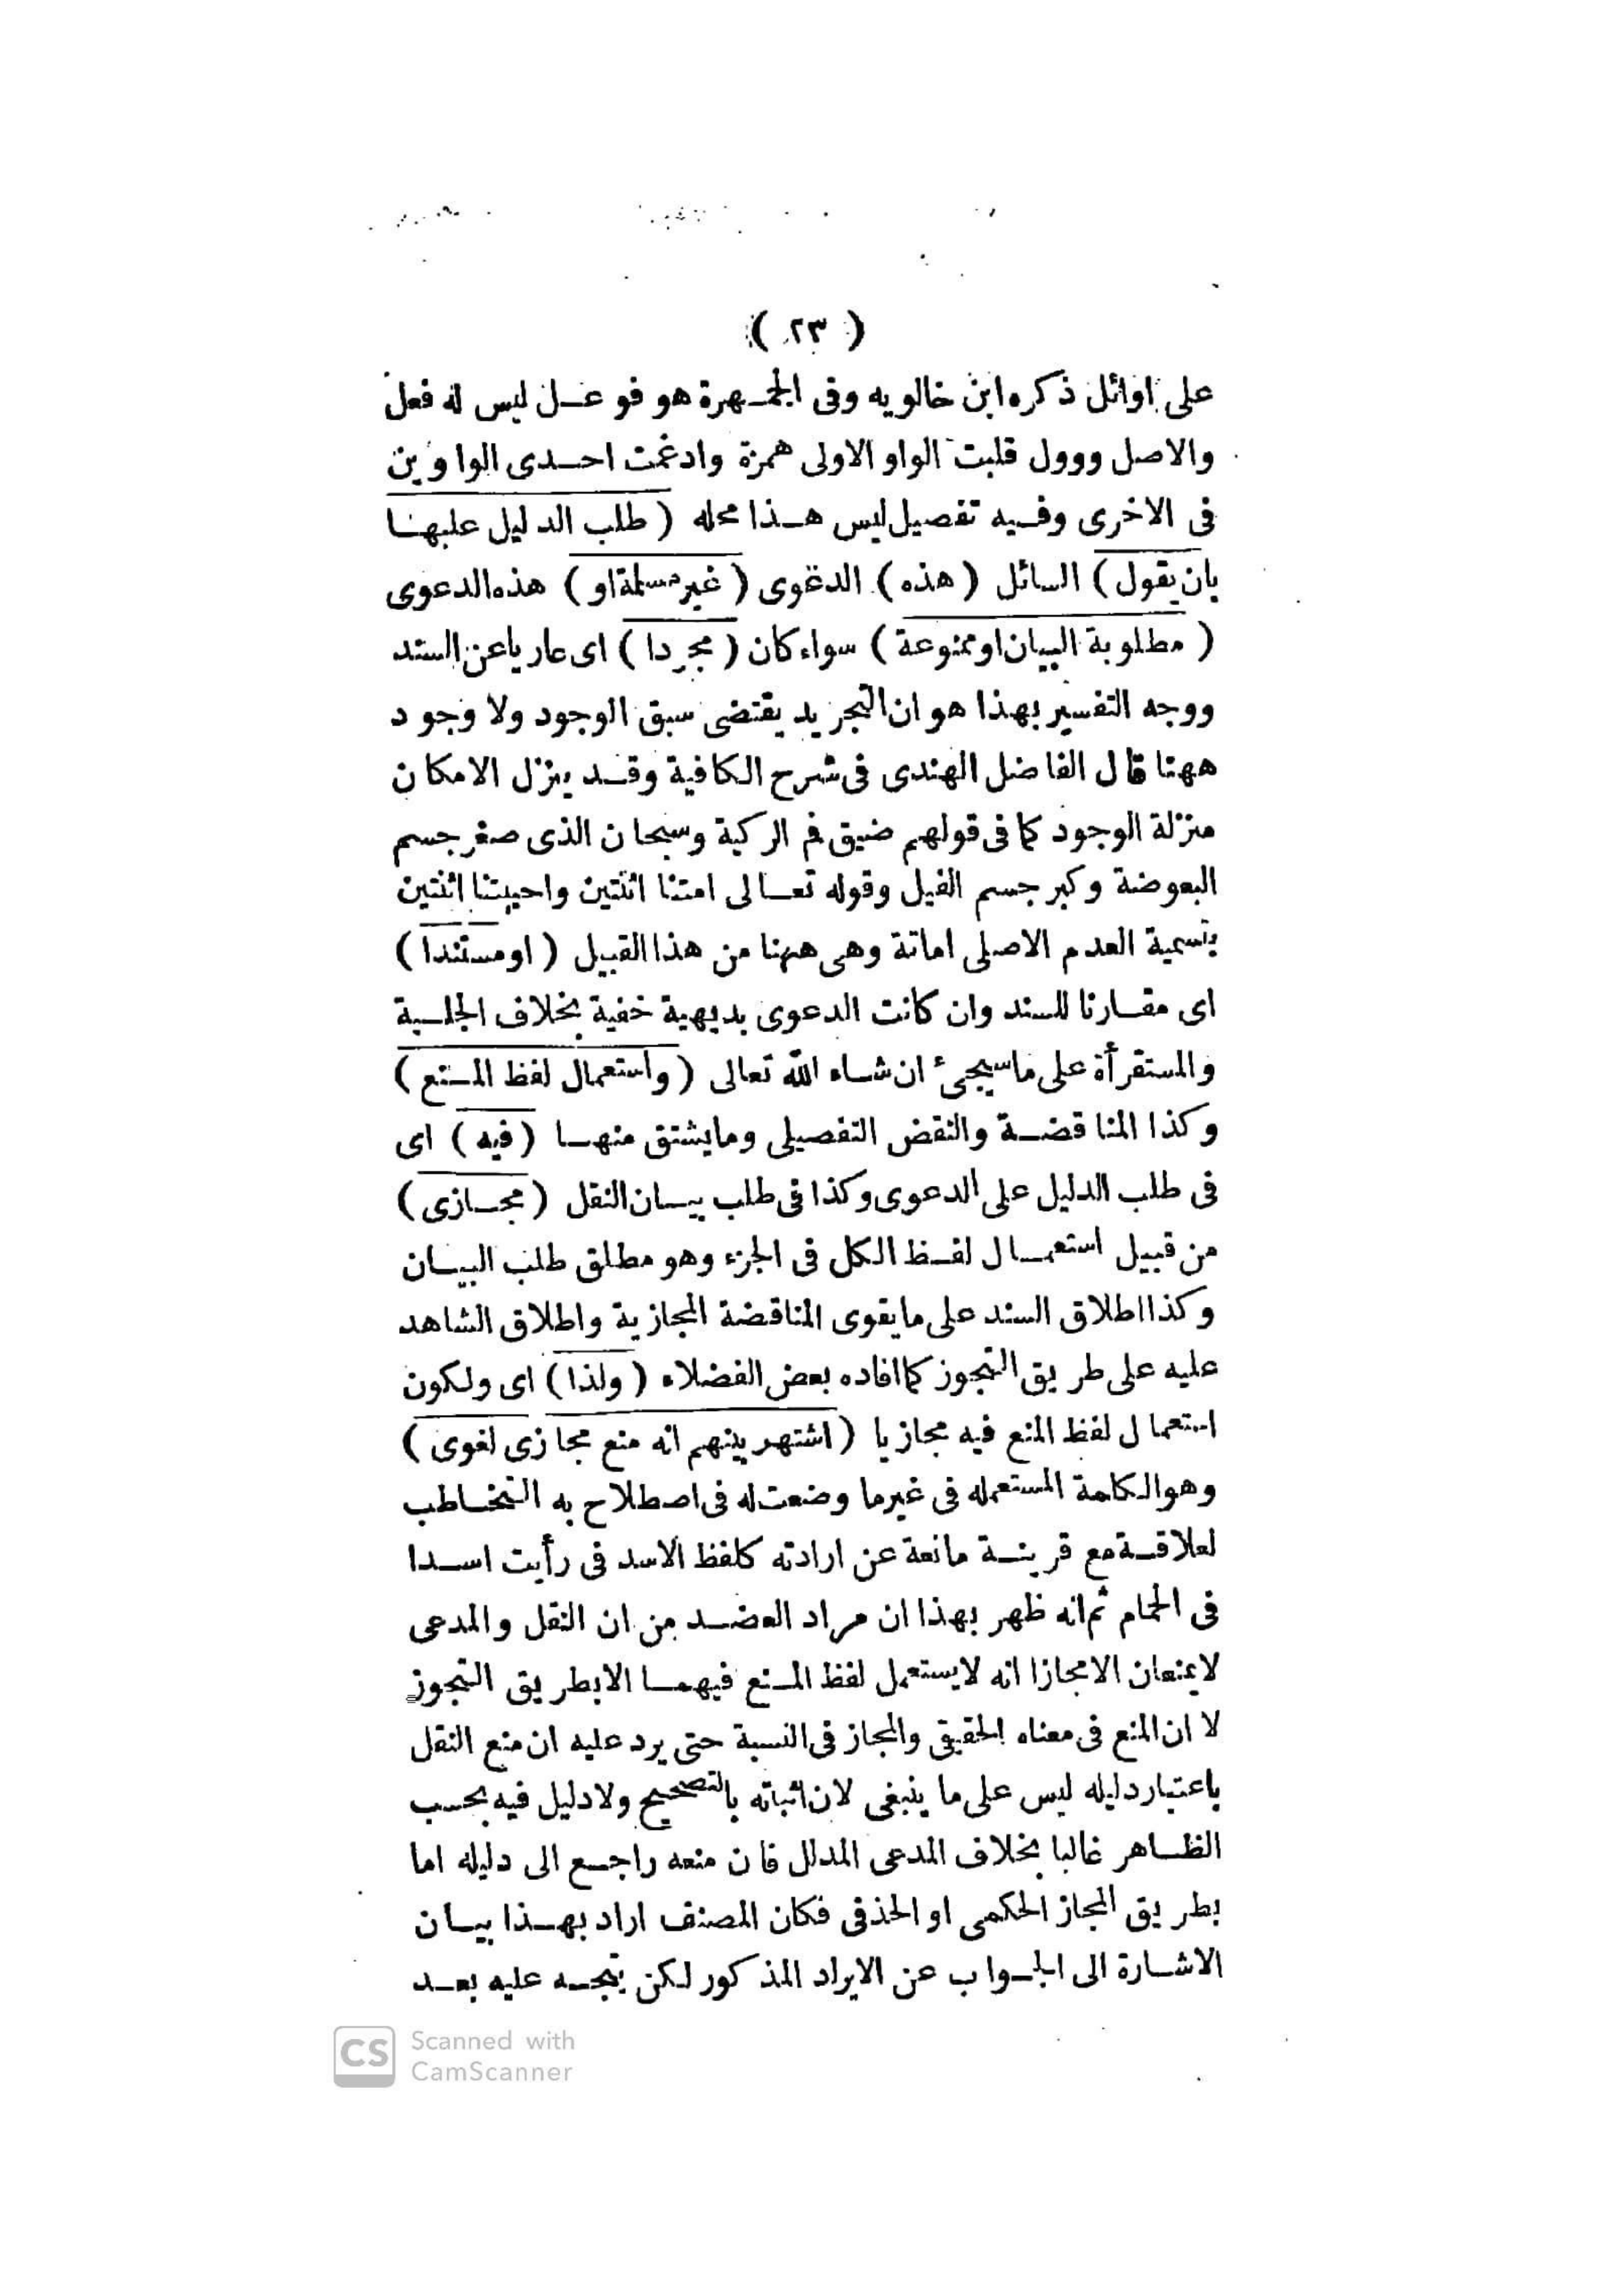 ( ٢٣ )
على اوائل ذكره ابن خالويه وفى الجمهرة هو فوعل ليس له فعل
والاصل ووول قلبت الواو الاولى همزة وادغمت احدى الواوين
فى الاخرى وفيه تفصيل ليس هذا محله ( طلب الدليل عليها
بان يقول ) السائل ( هذه ) الدعوى ( غير مسلمة او ) هذه الدعوى
( مطلوبة البيان او ممنوعة ) سواء كان ( مجردا ) اى عاريا عن السند
ووجه التفسير بهذا هو ان التجريد يقتضى سبق الوجود ولا وجود
ههنا قال الفاضل الهندى فى شرح الكافية وقد ينزل الامكان
منزلة الوجود كما فى قولهم ضيق فم الركية وسبحان الذى صغر جسم
البعوضة وكبر جسم الفيل وقوله تعالى امتنا اثنتين واحييتنا اثنتين
بتسمية العدم الاصلى اماتة وهى ههنا من هذا القبيل ( او مستندا )
اى مقارنا للسند وان كانت الدعوى بديهية خفية بخلاف الجلية
والمستقرأة على ما سيجئ ان شاء الله تعالى ( واستعمال لفظ المنع )
وكذا المناقضة والنقض التفصيلى وما يشتق منها ( فيه ) اى
فى طلب الدليل على الدعوى وكذا فى طلب بيان النقل ( مجازى )
من قبيل استعمال لفظ الكل فى الجزء وهو مطلق طلب البيان
وكذا اطلاق السند على ما يقوى المناقضة المجازية واطلاق الشاهد
عليه على طريق التجوز كما افاده بعض الفضلاء ( ولذا ) اى ولكون
استعمال لفظ المنع فيه مجازيا ( اشتهر بينهم انه منع مجازى لغوى )
وهو الكلمة المستعمله فى غير ما وضعت له فى اصطلاح به التخاطب
لعلاقة مع قرينة مانعة عن ارادته كلفظ الاسد فى رأيت اسدا
فى الحمام ثم انه ظهر بهذا ان مراد العضد من ان النقل والمدعى
لا يمنعان الا مجازا انه لا يستعمل لفظ المنع فيهما الا بطريق التجوز
لا ان المنع فى معناه الحقيقى والمجاز فى النسبة حتى يرد عليه ان منع النقل
باعتبار دليله ليس على ما ينبغى لان اثباته بالتصحيح ولا دليل فيه بحسب
الظاهر غالبا بخلاف المدعى المدلل فان منعه راجع الى دليله اما
بطريق المجاز الحكمى او الحذفى فكان المصنف اراد بهذا بيان
الاشارة الى الجواب عن الايراد المذكور لكن يتجه عليه بعد
CS Scanned with
CamScanner